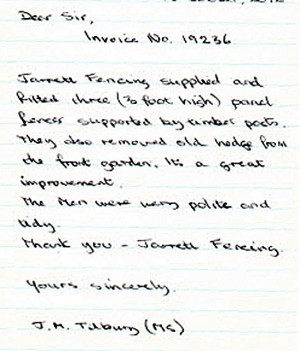 Dear Sir,
Invoice No. 19236
Jarrett Fencing supplied and
fitted three (3 foot high) panel
fences supported by timber posts.
They also removed old hedge from
the front garden. It's a great
improvement.
The men were very polite and
tidy.
Thank you - Jarrett Fencing.
Yours sincerely.
J.M. Tilbury (Ms)